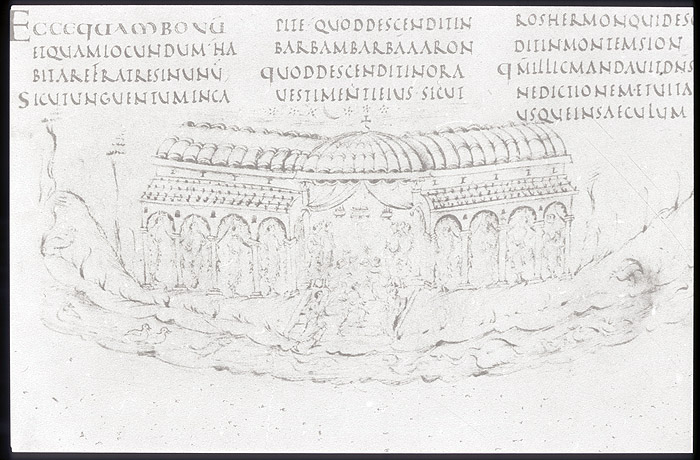 ECCEQUAMBONŪ
ETQUAMIOCUNDUM·HA
BITAREFRATRESINUNŪ
SICUTUNGUENTUMINCA
PITE·QUODDESCENDITIN
BARBAMBARBĀAARON
QUODDESCENDITINORA
UESTIMENTIEIUS·SICUT
ROSHERMONQUIDESC
DITINMONTEMSION
QM̄ILLICMANDAUIT,DNS
NEDICTIONEM·ETUITA
USQUEINSAECULUM